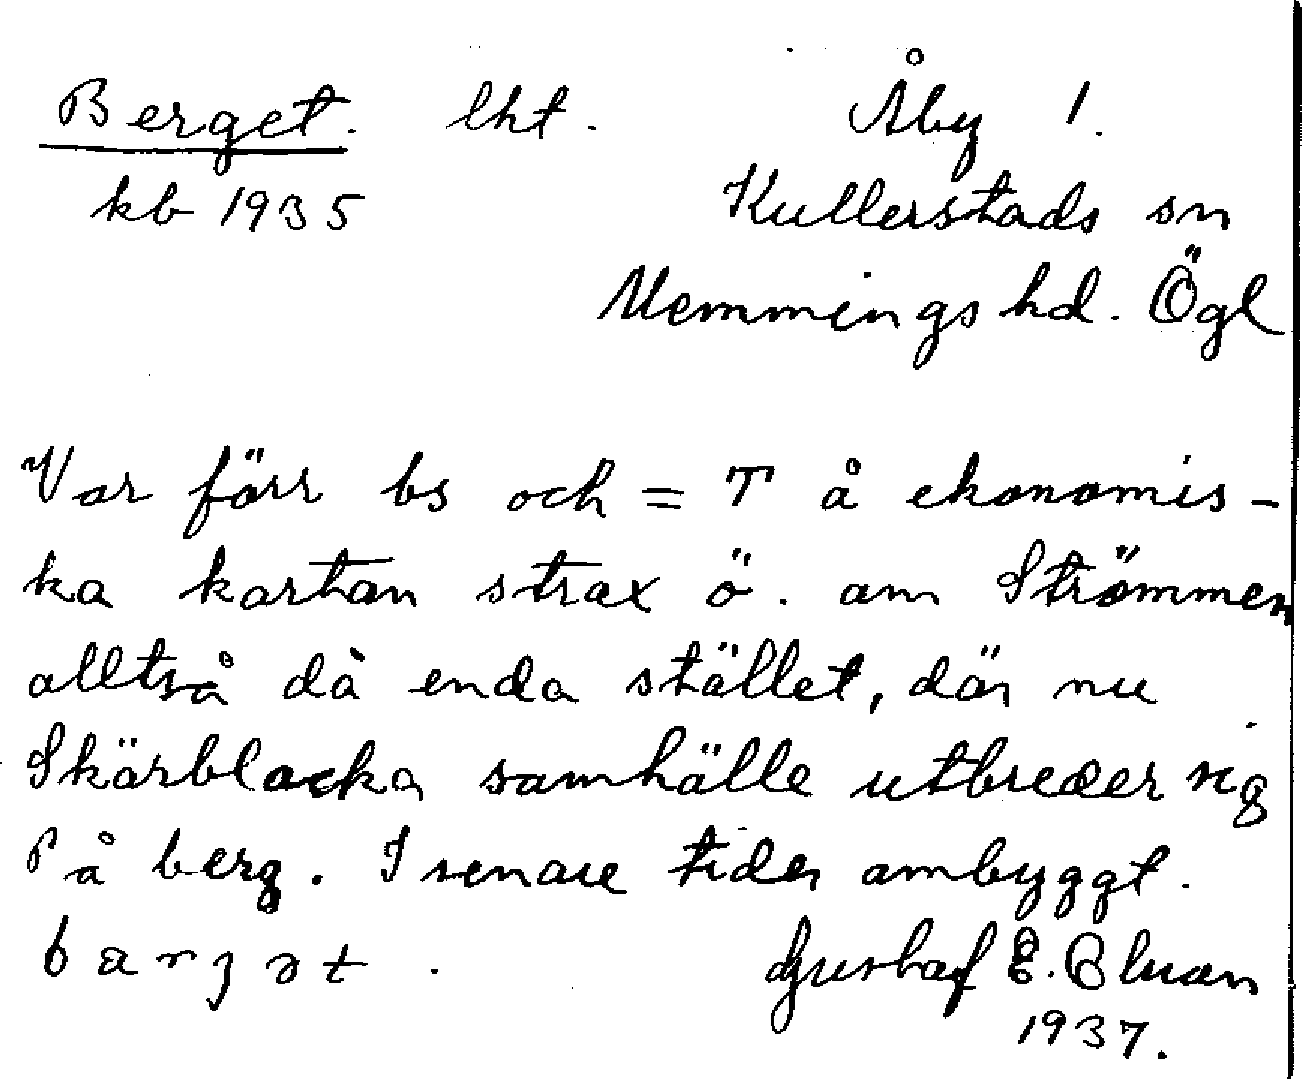 Berget. lht. Åby 1.
kb 1935 Kullerstads sn
Memmings hd. Ögl
Var förr bs och = T å ekonomis-
ka kartan strax ö. om Strömmen
alltså då enda stället, där nu
Skärblacka samhälle utbreder sig
På berg. I senare tider ombyggt.
bärjət. Gustaf E.
1937.